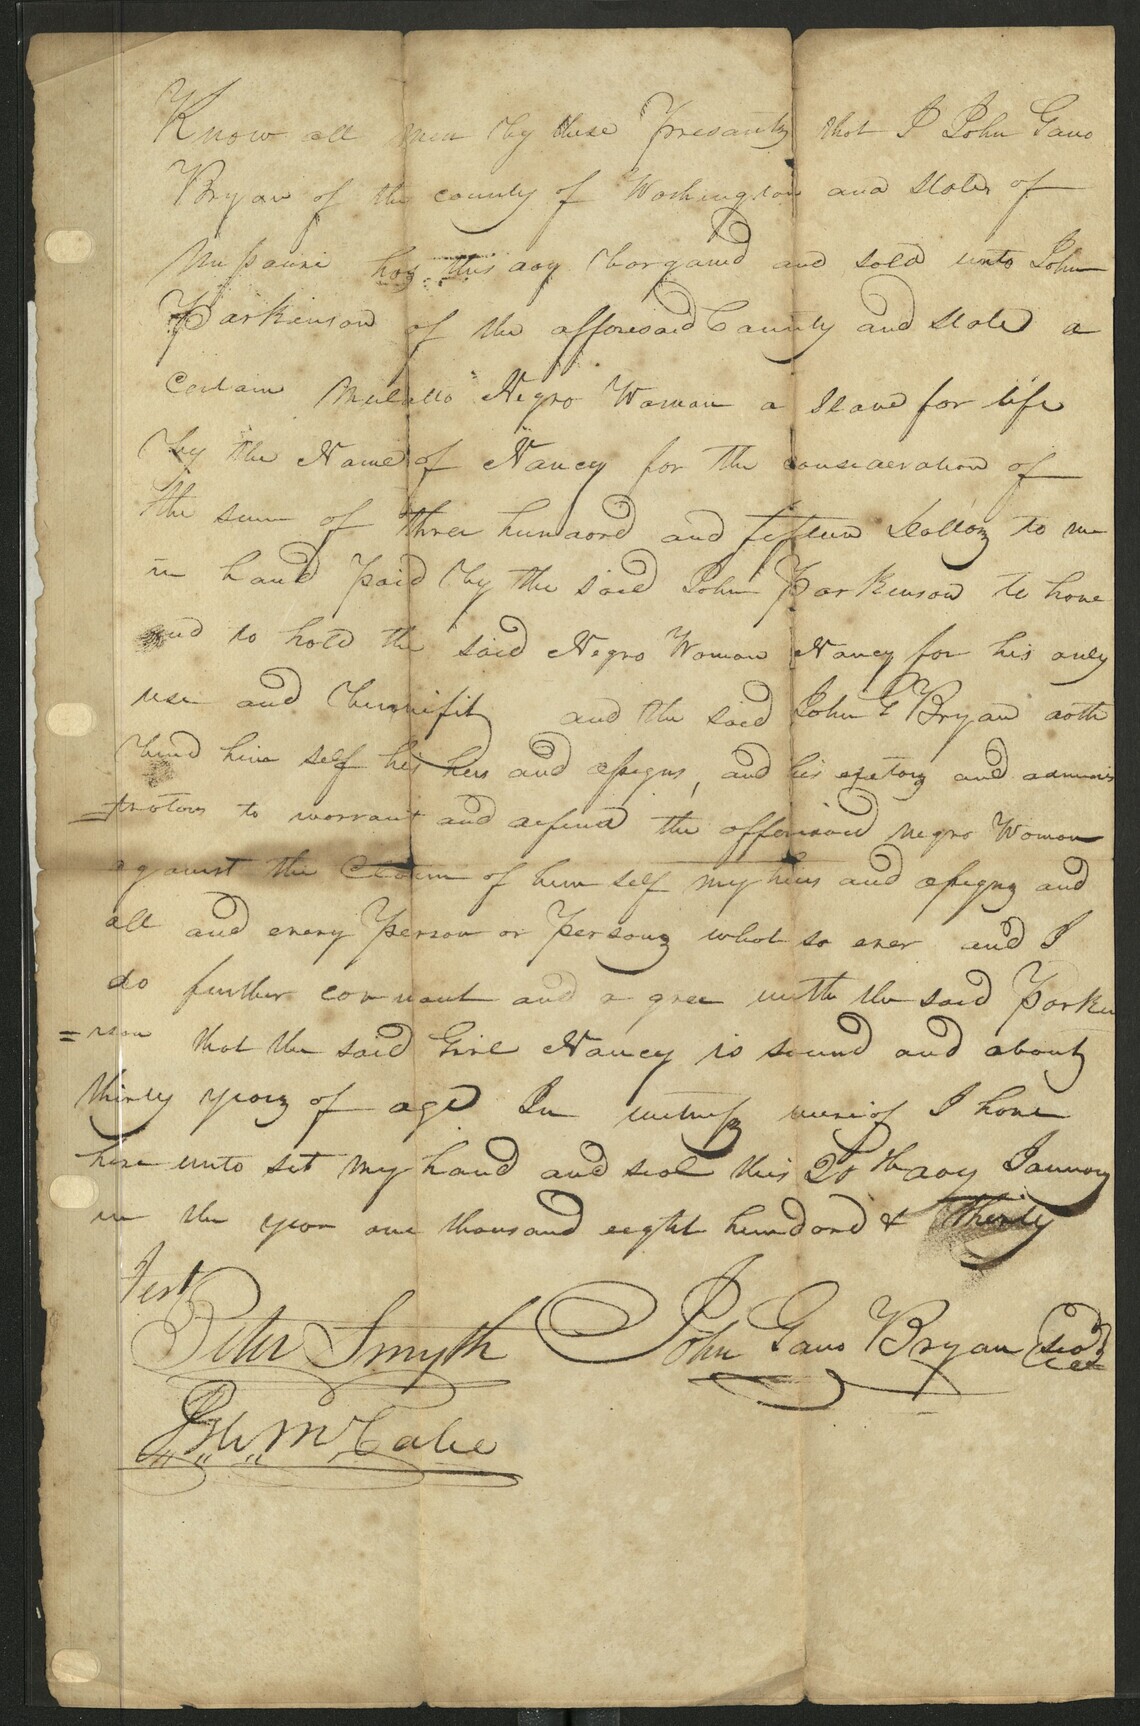 Know all men by these Presants that I John Gano
Bryan of the county of Washington and State of
Missouri hav this day bargand and sold unto John
Parkinson of the afforesaid County and State a
Certain Mulatto Negro Woman a slave for life
by the Name of Nancy for the consideration of
the sum of three hundord and fifteen Dollors to me
in hand Paid by the said John Parkinson to have
and to hold the said Negro Woman Nancy for his only
use and bennifit and the said John G Bryan doth
bind him self his heirs and assigns, and his exetors and adminis
=trators to warrant and defend the afforisaid negro Woman
against the Claim of him self my heirs and assigns and
all and every Person or Persons whot so ever and I
do further covnant and a gree with the said Parkin
=nson that the said Girl Nancy is sound and about
thirty years of age In witness wereof I have
here unto set my hand and seal this day January
in the year one thousand eight hundord & thirty
Test
Peter Smyth John Gano Bryan seal
McCabe